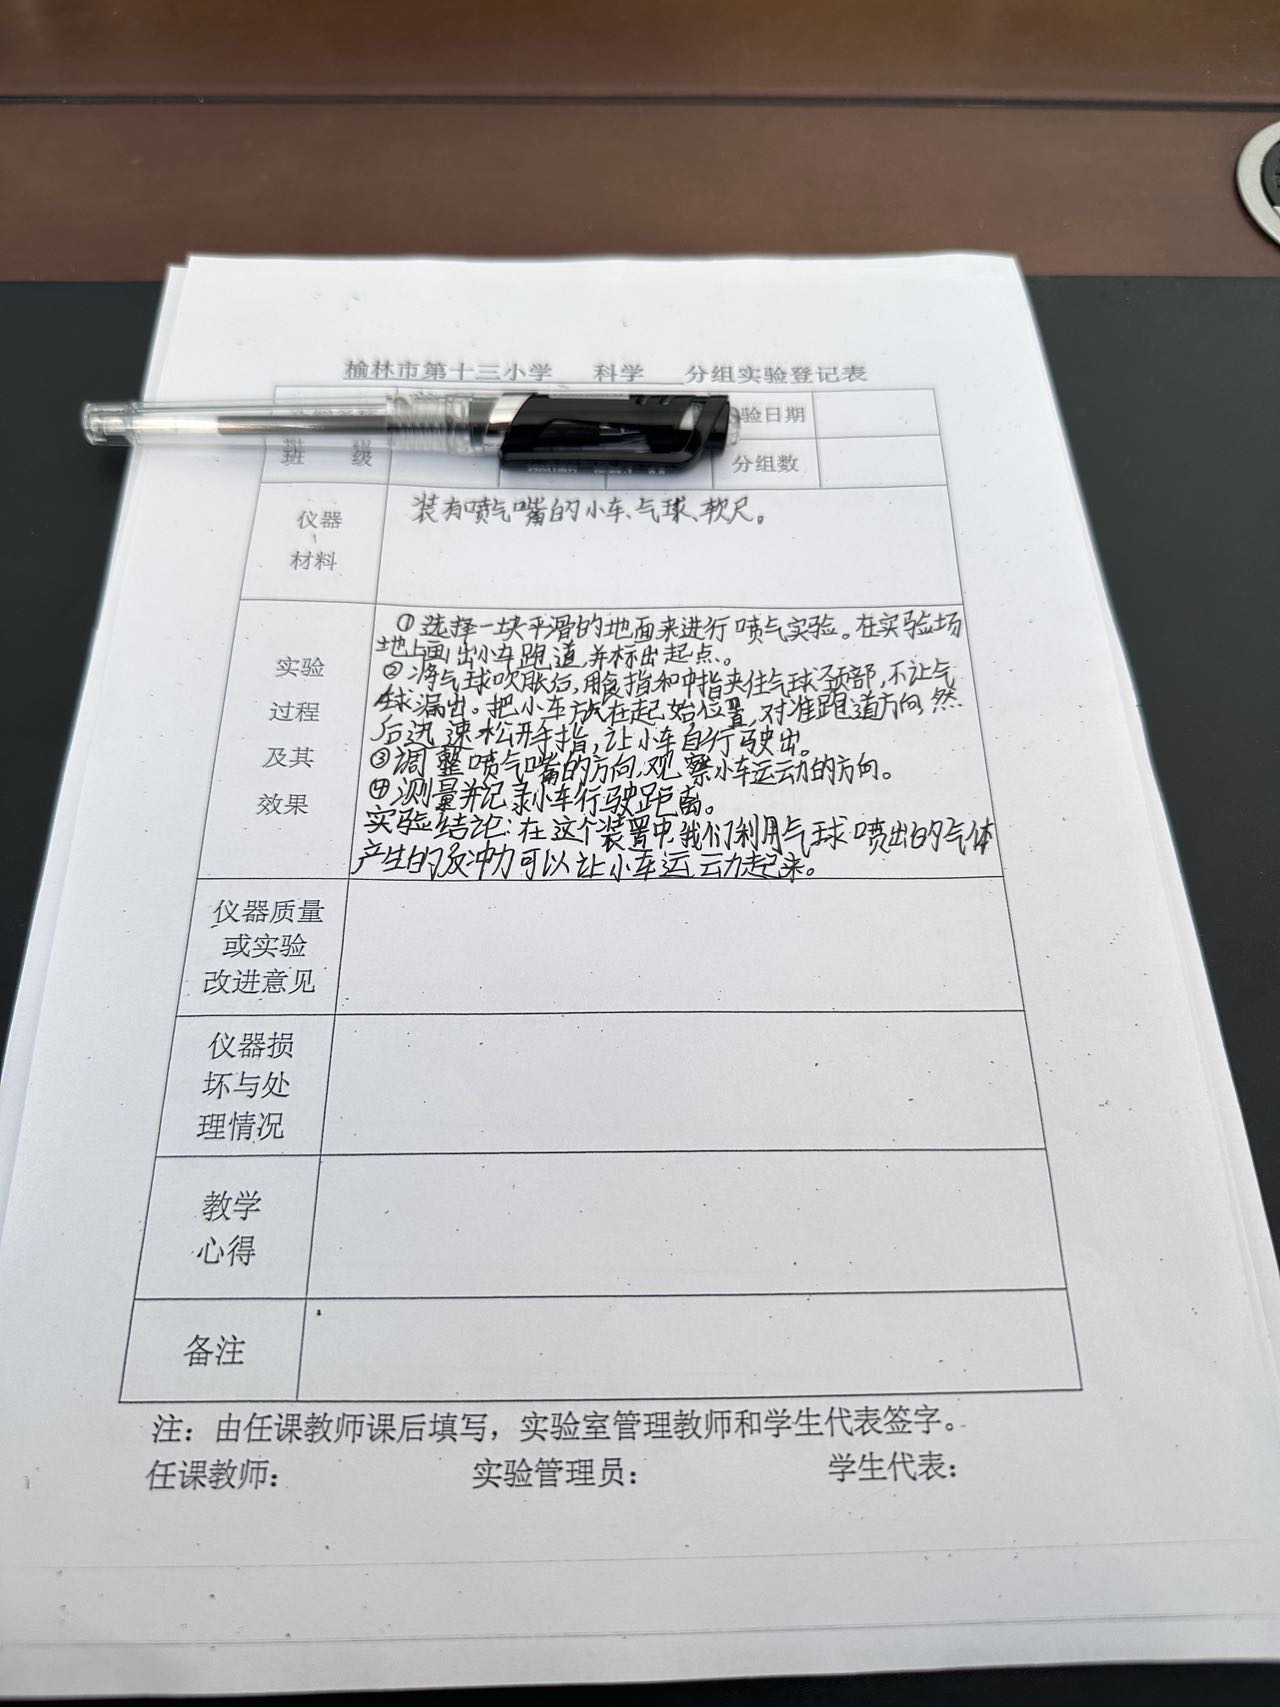 榆林市第十三小学 科学 分组实验登记表
验日期
班 级
分组数
仪器
材料
装有喷气嘴的小车、气球、软尺。
实验
过程
及其
效果
①选择一块平滑的地面来进行喷气实验。在实验场
地上画出小车跑道,并标出起点。
②将气球吹胀后,用食指和中指夹住气球颈部,不让气
球漏出。把小车放在起始位置,对准跑道方向,然
后迅速松开手指,让小车自行驶出。
③调整喷气嘴的方向,观察小车运动的方向。
④测量并记录小车行驶距离。
实验结论:在这个装置中,我们利用气球喷出的气体
产生的反冲力可以让小车运动起来。
仪器质量
或实验
改进意见
仪器损
坏与处
理情况
教学
心得
备注
注：由任课教师课后填写，实验室管理教师和学生代表签字。
任课教师： 实验管理员： 学生代表：